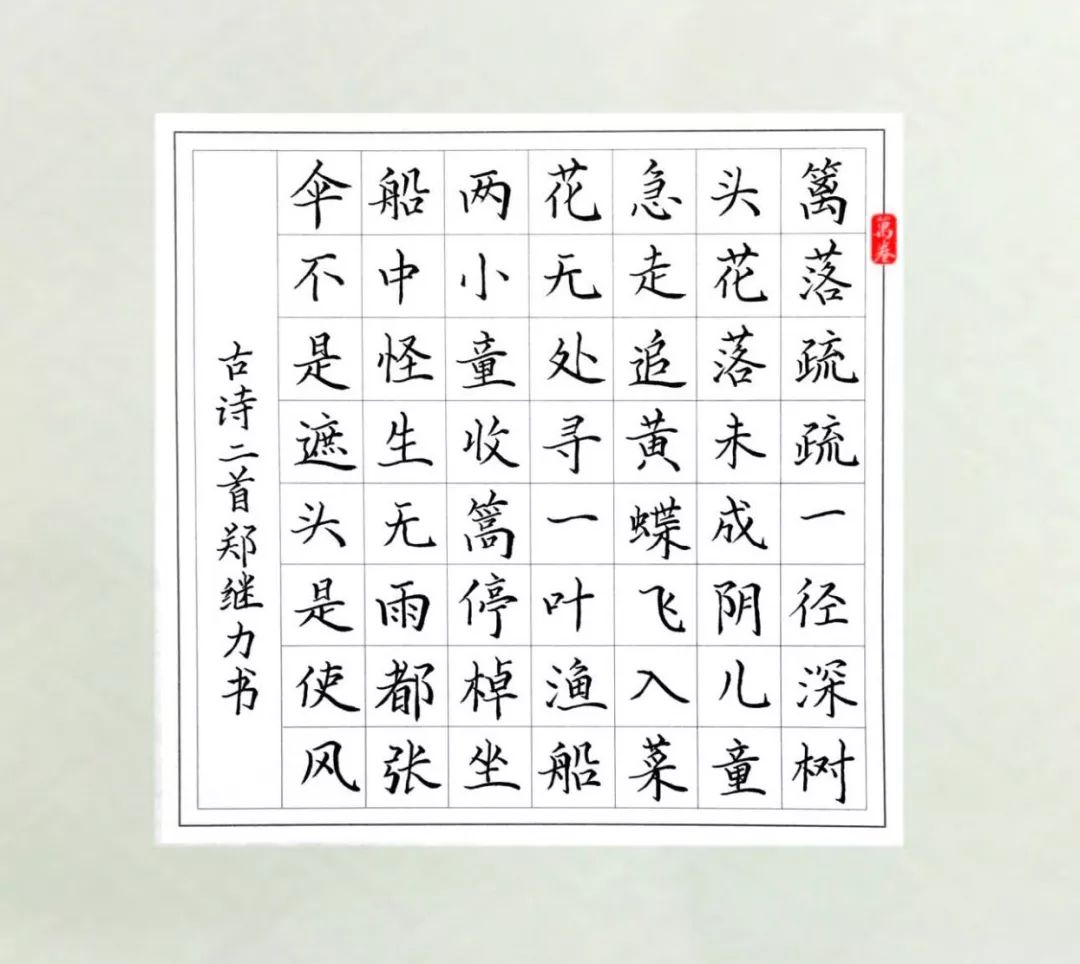 篱落疏疏一径深树
头花落未成阴儿童
急走追黄蝶飞入菜
花无处寻一叶渔船
两小童收篙停棹坐
船中怪生无雨都张
伞不是遮头是使风
古诗二首郑继力书
万卷